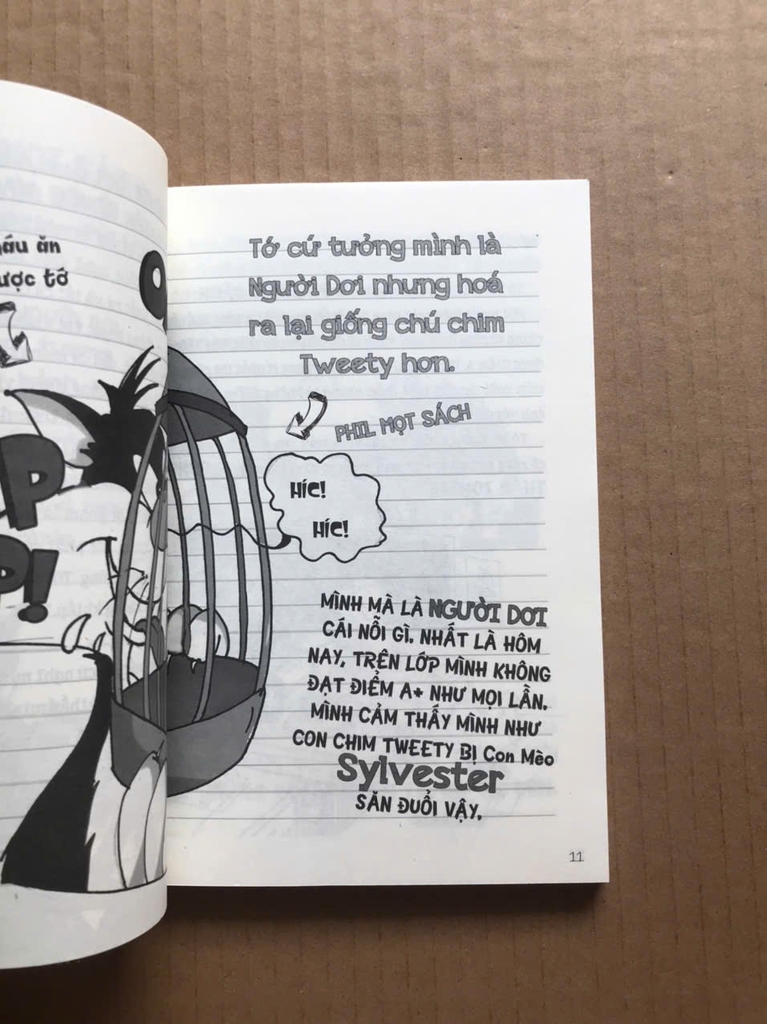 ăn
tớ
P!
Tớ cứ tưởng mình là
Người Dơi nhưng hoá
ra lại giống chú chim
Tweety hơn.
PHIL MỌT SÁCH
Híc!
Híc!
MÌNH MÀ LÀ NGƯỜI DƠI
CÁI NỖI GÌ. NHẤT LÀ HÔM
NAY, TRÊN LỚP MÌNH KHÔNG
ĐẠT ĐIỂM A+ NHƯ MỌI LẦN.
MÌNH CẢM THẤY MÌNH NHƯ
CON CHIM TWEETY BỊ Con Mèo
Sylvester
SĂN ĐUỔI VẬY.
11